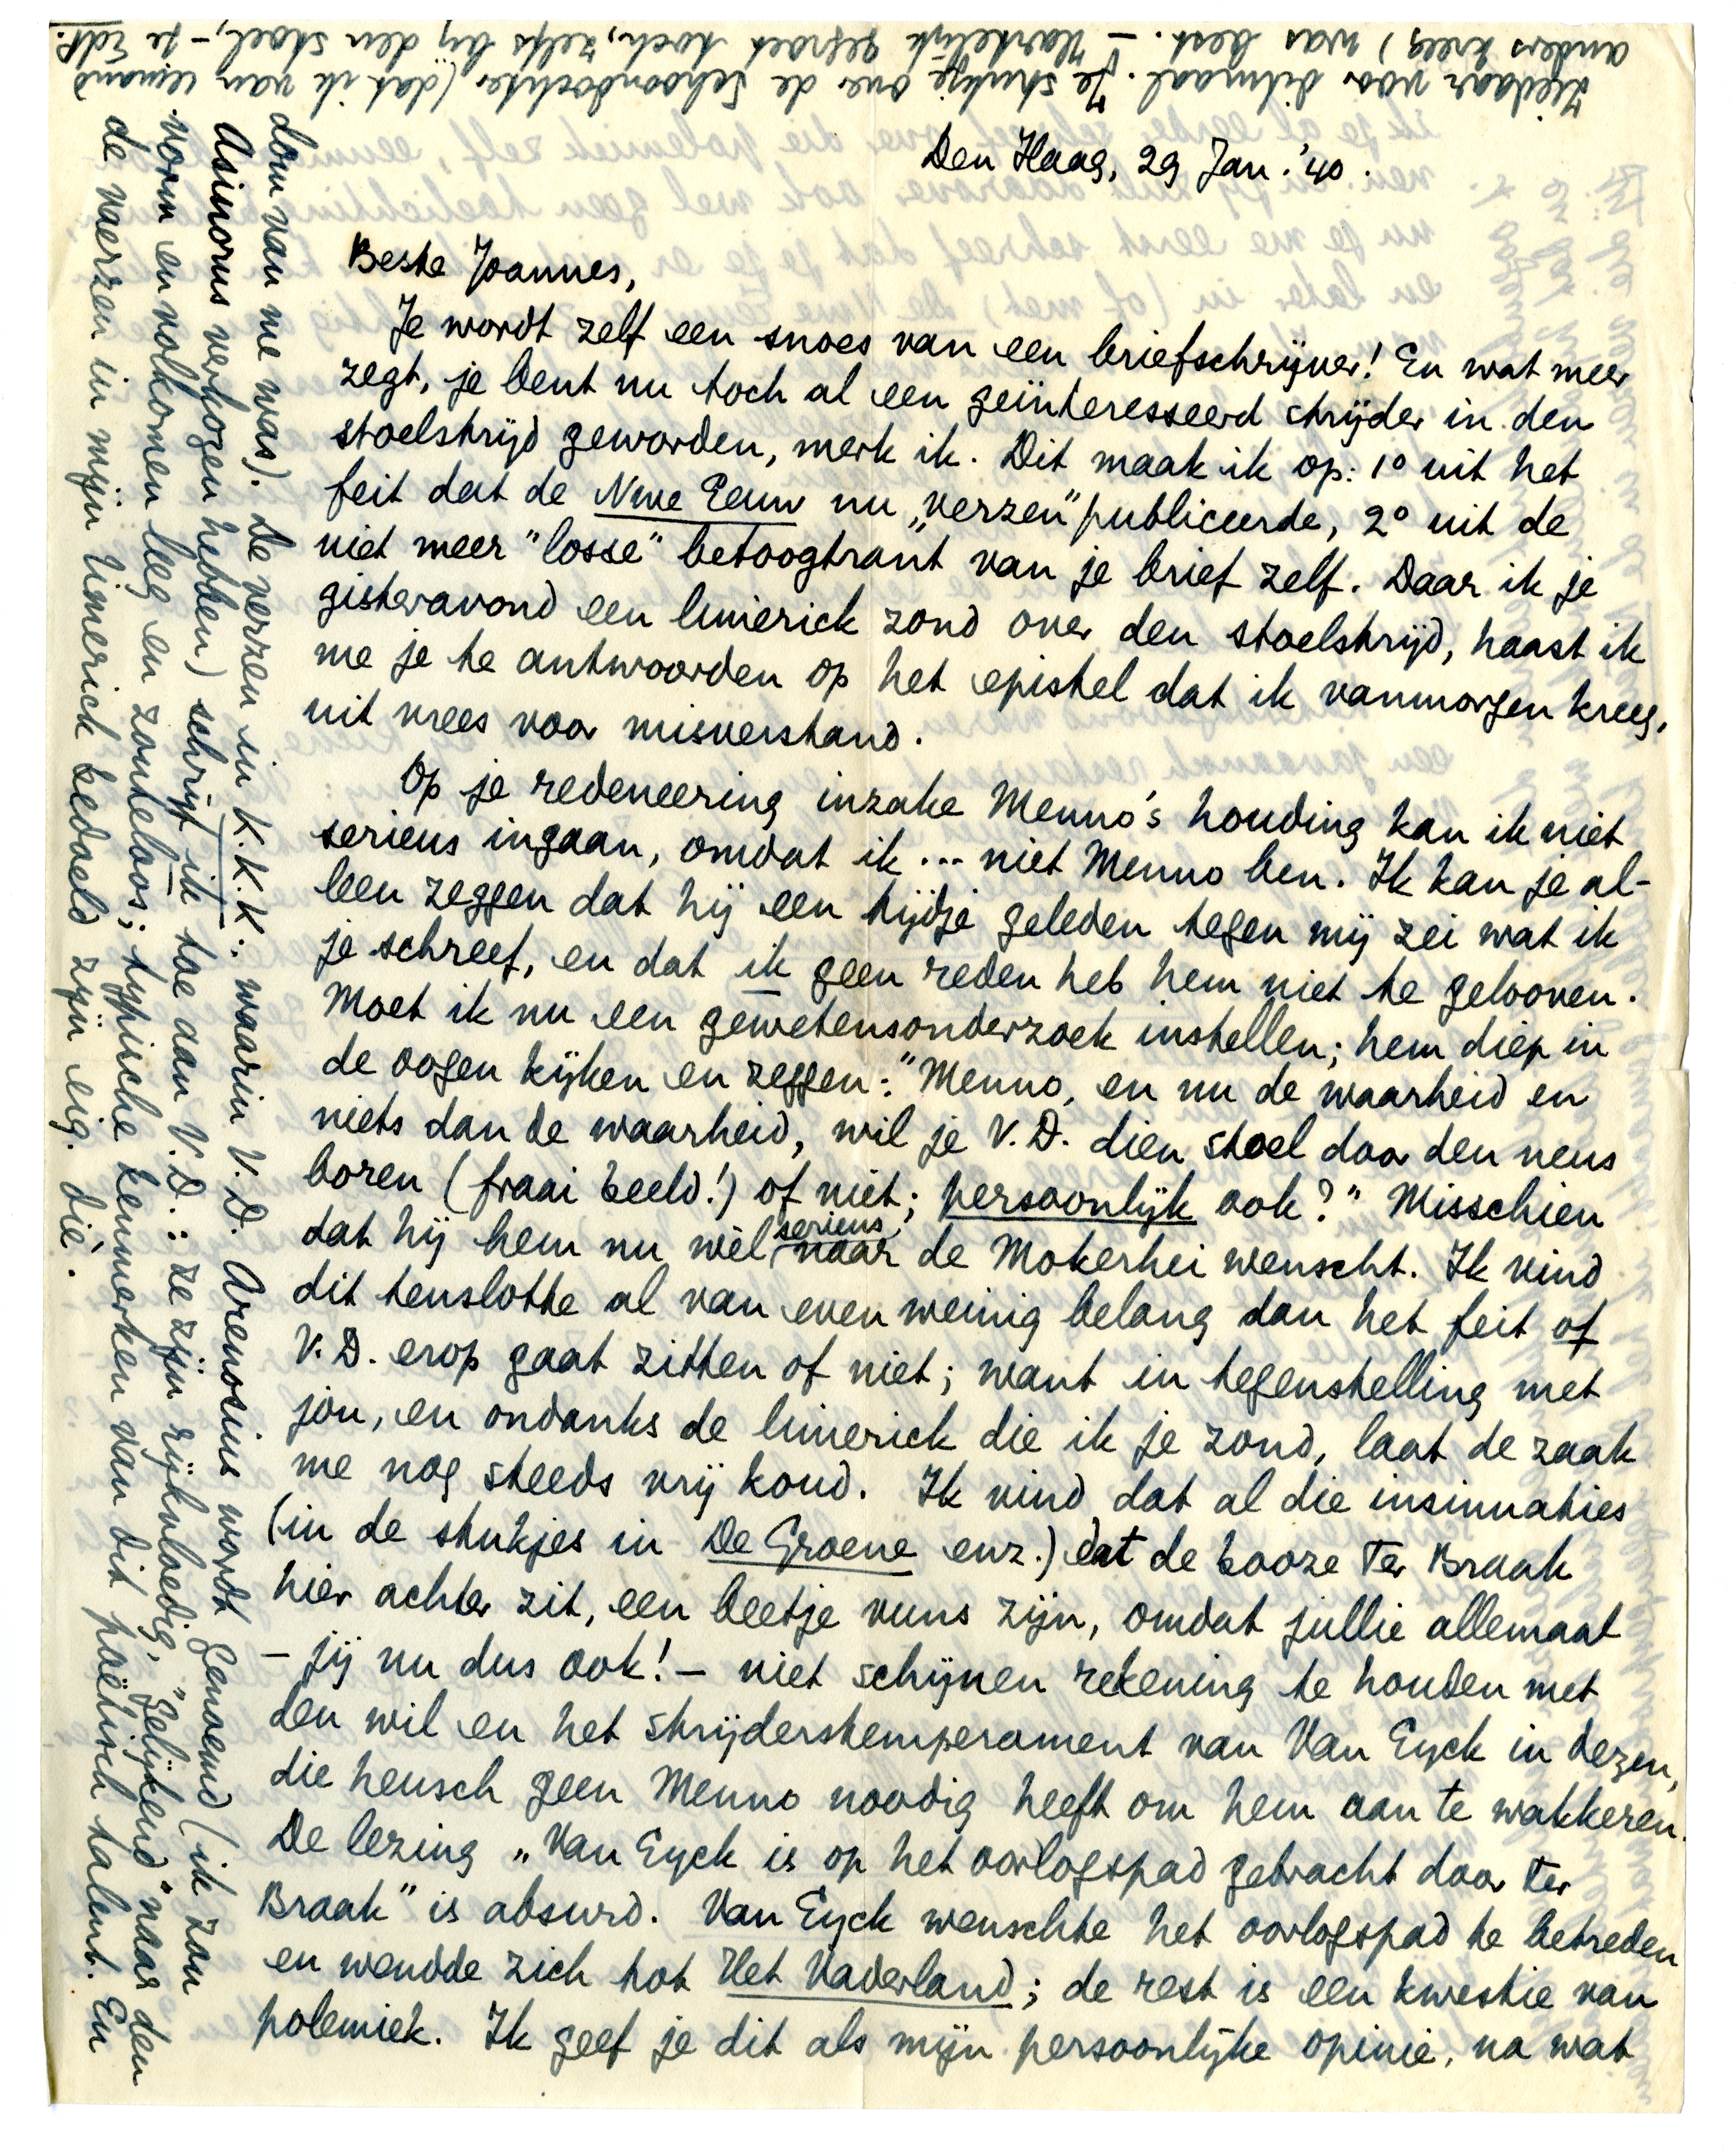 Den Haag, 29 Jan. '40.
Beste Joannes,
Je wordt zelf een snoes van een briefschrijver! En wat meer
zegt, je bent nu toch al een geïnteresseerd strijder in den
stoelstrijd geworden, merk ik. Dit maak ik op: 1° uit het
feit dat de Nwe Eeuw nu „verzen” publiceerde, 2° uit de
niet meer "losse" betoogtrant van je brief zelf. Daar ik je
gisteravond een limerick zond over den stoelstrijd, haast ik
me je te antwoorden op het epistel dat ik vanmorgen kreeg,
uit vrees voor misverstand.
Op je redeneering inzake Menno's houding kan ik niet
serieus ingaan, omdat ik ... niet Menno ben. Ik kan je al-
leen zeggen dat hij een tijdje geleden tegen mij zei wat ik
je schreef, en dat ik geen reden heb hem niet te gelooven.
Moet ik nu een gewetensonderzoek instellen; hem diep in
de oogen kijken en zeggen: "Menno, en nu de waarheid en
niets dan de waarheid, wil je V.D. dien stoel door den neus
boren (fraai beeld!) of niet; persoonlijk ook?" Misschien
dat hij hem nu wèl serieus naar de Mokerhei wenscht. Ik vind
dit tenslotte al van even weinig belang dan het feit of
V.D. erop gaat zitten of niet; want in tegenstelling met
jou, en ondanks de limerick die ik je zond, laat de zaak
me nog steeds vrij koud. Ik vind dat al die insinuaties
(in de stukjes in De Groene enz.) dat de booze Ter Braak
hier achter zit, een beetje vuns zijn, omdat jullie allemaal
– jij nu dus ook! – niet schijnen rekening te houden met
den wil en het strijderstemperament van Van Eyck in dezen,
die heusch geen Menno noodig heeft om hem aan te wakkeren.
De lezing „Van Eyck is op het oorlogspad gebracht door Ter
Braak” is absurd. Van Eyck wenschte het oorlogspad te betreden
en wendde zich tot Het Vaderland; de rest is een kwestie van
polemiek. Ik geef je dit als mijn persoonlijke opinie, na wat
dom van me was). De verzen in K.K.K.: waarin V.D. Arenosius wordt genoemd (ik zou
Asinorus verkozen hebben) schrijf ik toe aan V.D.: ze zijn rijkvloedig, "gelijkend" naar den
vorm en volkomen leeg en zouteloos; typische kenmerken van dit poëtisch talent. En
de vaerzen in mijn limerick bedoeld zijn eig. díé.
Ziedaar voor ditmaal. Je stukje over de Schoondochter (dat ik van iemand
anders kreeg) was best. – Hartelijk gegroet toch, zelfs bij den stoel, – je EdP.